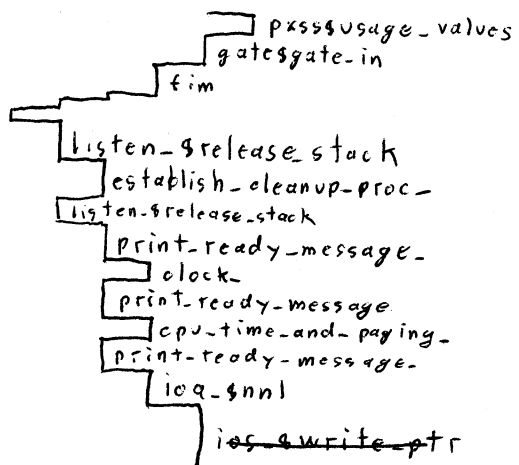 pxss$usage_values
gate$gate_in
fim
listen_$release_stack
establish_cleanup_proc_
listen_$release_stack
print_ready_message_
clock_
print_ready_message
cpu_time_and_paging_
print_ready_message_
ioa_$nnl
ios_$write_ptr